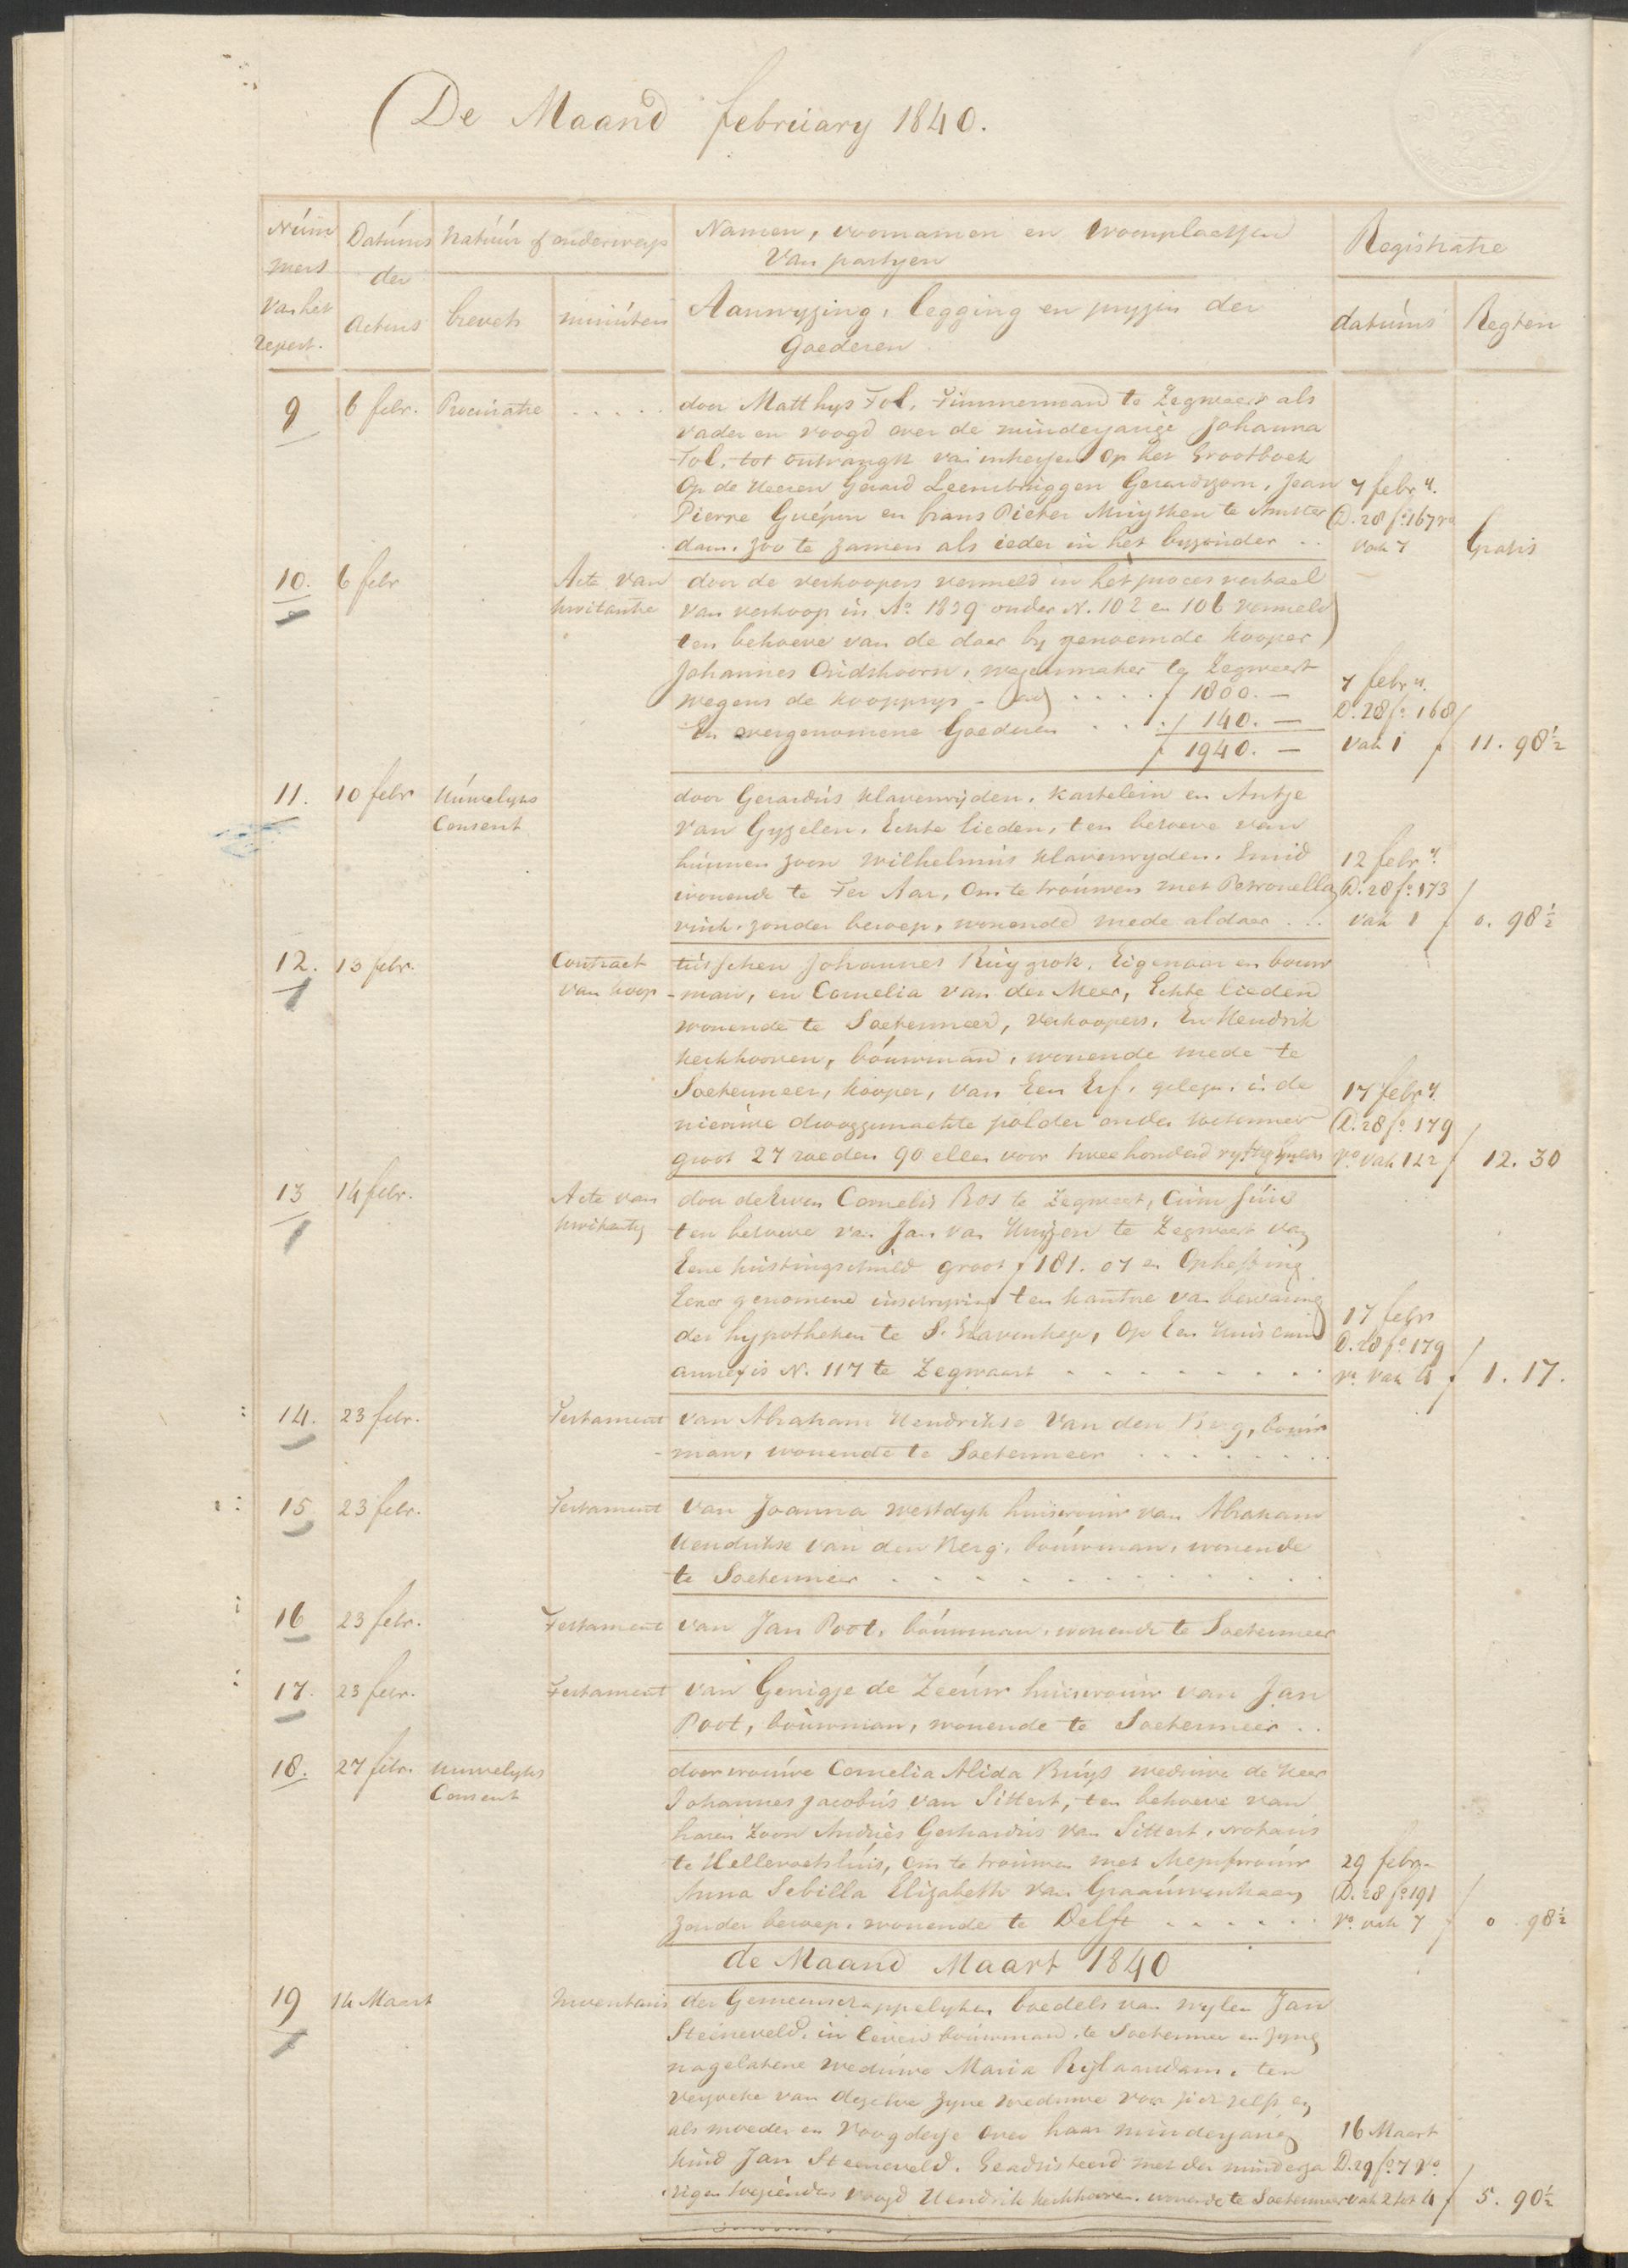 De Maand february 1840.
Num
mers
van het
repert.
Datums
der
Actens
Natuur of onderwerp
brevets
minuten
Namen, voornamen en woonplaetsen
van partyen
Aanwyzing, legging en pryzen der
Goederen
Registratie
datums
Regten
9 6 febr. Procuratie . . . . . door Matthys Tol, Timmerman te Zegwaert als
vader en voogd over de minderjarige Johanna
Tol, tot ontvangst van intressen op het Grootboek
Op de Heeren Gerard Leembruggen Gerardszoon, Jean 7 febry.
Pierre Guépin en frans Pieter Muysken te Amster D. 28 fo. 167 vo
dam. zoo te zamen als ieder in het byzonder . . vak 7 Gratis
10. 6 febr Acte van door de verkoopers vermeld in het proces verbaal
kwitantie van verkoop in Ao. 1839 onder N. 102 en 106 vermeld
ten behoeve van de daer by genoemde kooper
Johannes Oudshoorn, wagenmaker te Zegwaert
wegens de koopprys - ad . . . . f 1800. — 7 febry.
En overgenomene Goederen . . . f 140. — D. 28 fo. 168
f 1940. — vak 1 f 11. 98½
11. 10 febr Huwelyks door Gerardus Klavenwyden, kastelein en Antje
Consent van Gyzelen, Echte lieden, ten behoeve van
hunnen zoon Wilhelmus Klavenwyden, Smid 12 febry.
wonende te Ter Aar, om te trouwen met Petronella D. 28 fo. 173
vink, zonder beroep, wonende mede aldaer . . . vak 1 f 0. 98½
12. 13 febr. Contract tusschen Johannes Ruygrok, Eigenaar en bouw
van koop - man, en Cornelia van der Meer, Echte lieden
wonende te Soetermeer, verkoopers, En Hendrik
kerkhoven, bouwman, wonende mede te
Soetermeer, kooper, van Een Erf, gelegen in de
nieuwe drooggemaakte polder onder Soetermeer
groot 27 roeden 90 ellen voor twee honderd vyftig guldens
17 febry.
D. 28 fo. 179
vo vak 1 & 2 f 12. 30
13 14 febr. Acte van door de Erven Cornelis Bos te Zegwaert, cum suis
kwitantie ten behoeve van Jan van Huyzen te Zegwaert van
Eene kustingschuld groot f 181. 07 en Opheffing
Eener genomene inschryving ten kantore van bewaring
der hypotheken te S. Gravenhage, Op Een Huis cum 17 febr
D. 28 fo 179
annexis N. 117 te Zegwaart . . . . . . . . vo. vak 4 f 1. 17.
14. 23 febr. Testament van Abraham Hendrikse van den Berg, bouw
- man, wonende te Soetermeer . . . . . . .
15 23 febr. Testament van Joanna Westdyk huisvrouw van Abraham
Hendrikse van den Berg, bouwman, wonende
te Soetermeer . . . . . . . . . . .
16 23 febr. Testament van Jan Poot, bouwman, wonende te Soetermeer
17. 23 febr. Testament van Gerrigje de Zeeuw huisvrouw van Jan
Poot, bouwman, wonende te Soetermeer . .
18. 27 febr. Huwelyks door vrouwe Cornelia Alida Buys weduwe de Heer
Consent Johannes Jacobus van Sittert, ten behoeve van
haren Zoon Andries Gerhardus van Sittert, notaris
te Hellevoetsluis, om te trouwen met Mejufvrouw 29 febry
Anna Sebilla Elizabeth van Graauwenhaan D. 28 fo. 191
zonder beroep, wonende te Delft . . . . . . vo. vak 7 f 0. 98½
de Maand Maart 1840
19 14 Maart Inventaris der Gemeenschappelyken boedels van wylen Jan
Steeneveld, in leven bouwman, te Soetermeer en zyne
nagelatene weduwe Maria Rylaardam, ten
verzoeke van dezelve zyne weduwe voor zich zelfs en
als moeder en Voogdesje over haar minderjarig 16 Maart
kind Jan Steeneveld. Geadsisteerd met den minderja D. 29 fo. 7 vo
rigen toeziende voogd Hendrik kerkhoven, wonende te Soetermeer vak 2 tot 4 f 5. 90½